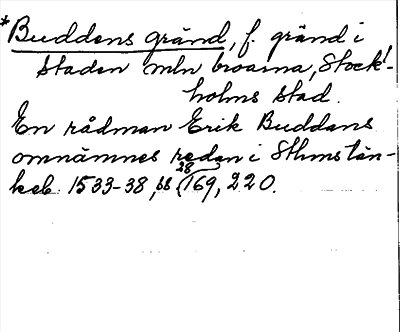 *Buddens gränd, f. gränd i
staden mln broarna, Stock-
holms stad.
En rådman Erik Buddans
omnämnes redan i Sthms tän-
keb. 1533-38, ss (169, 220.
28